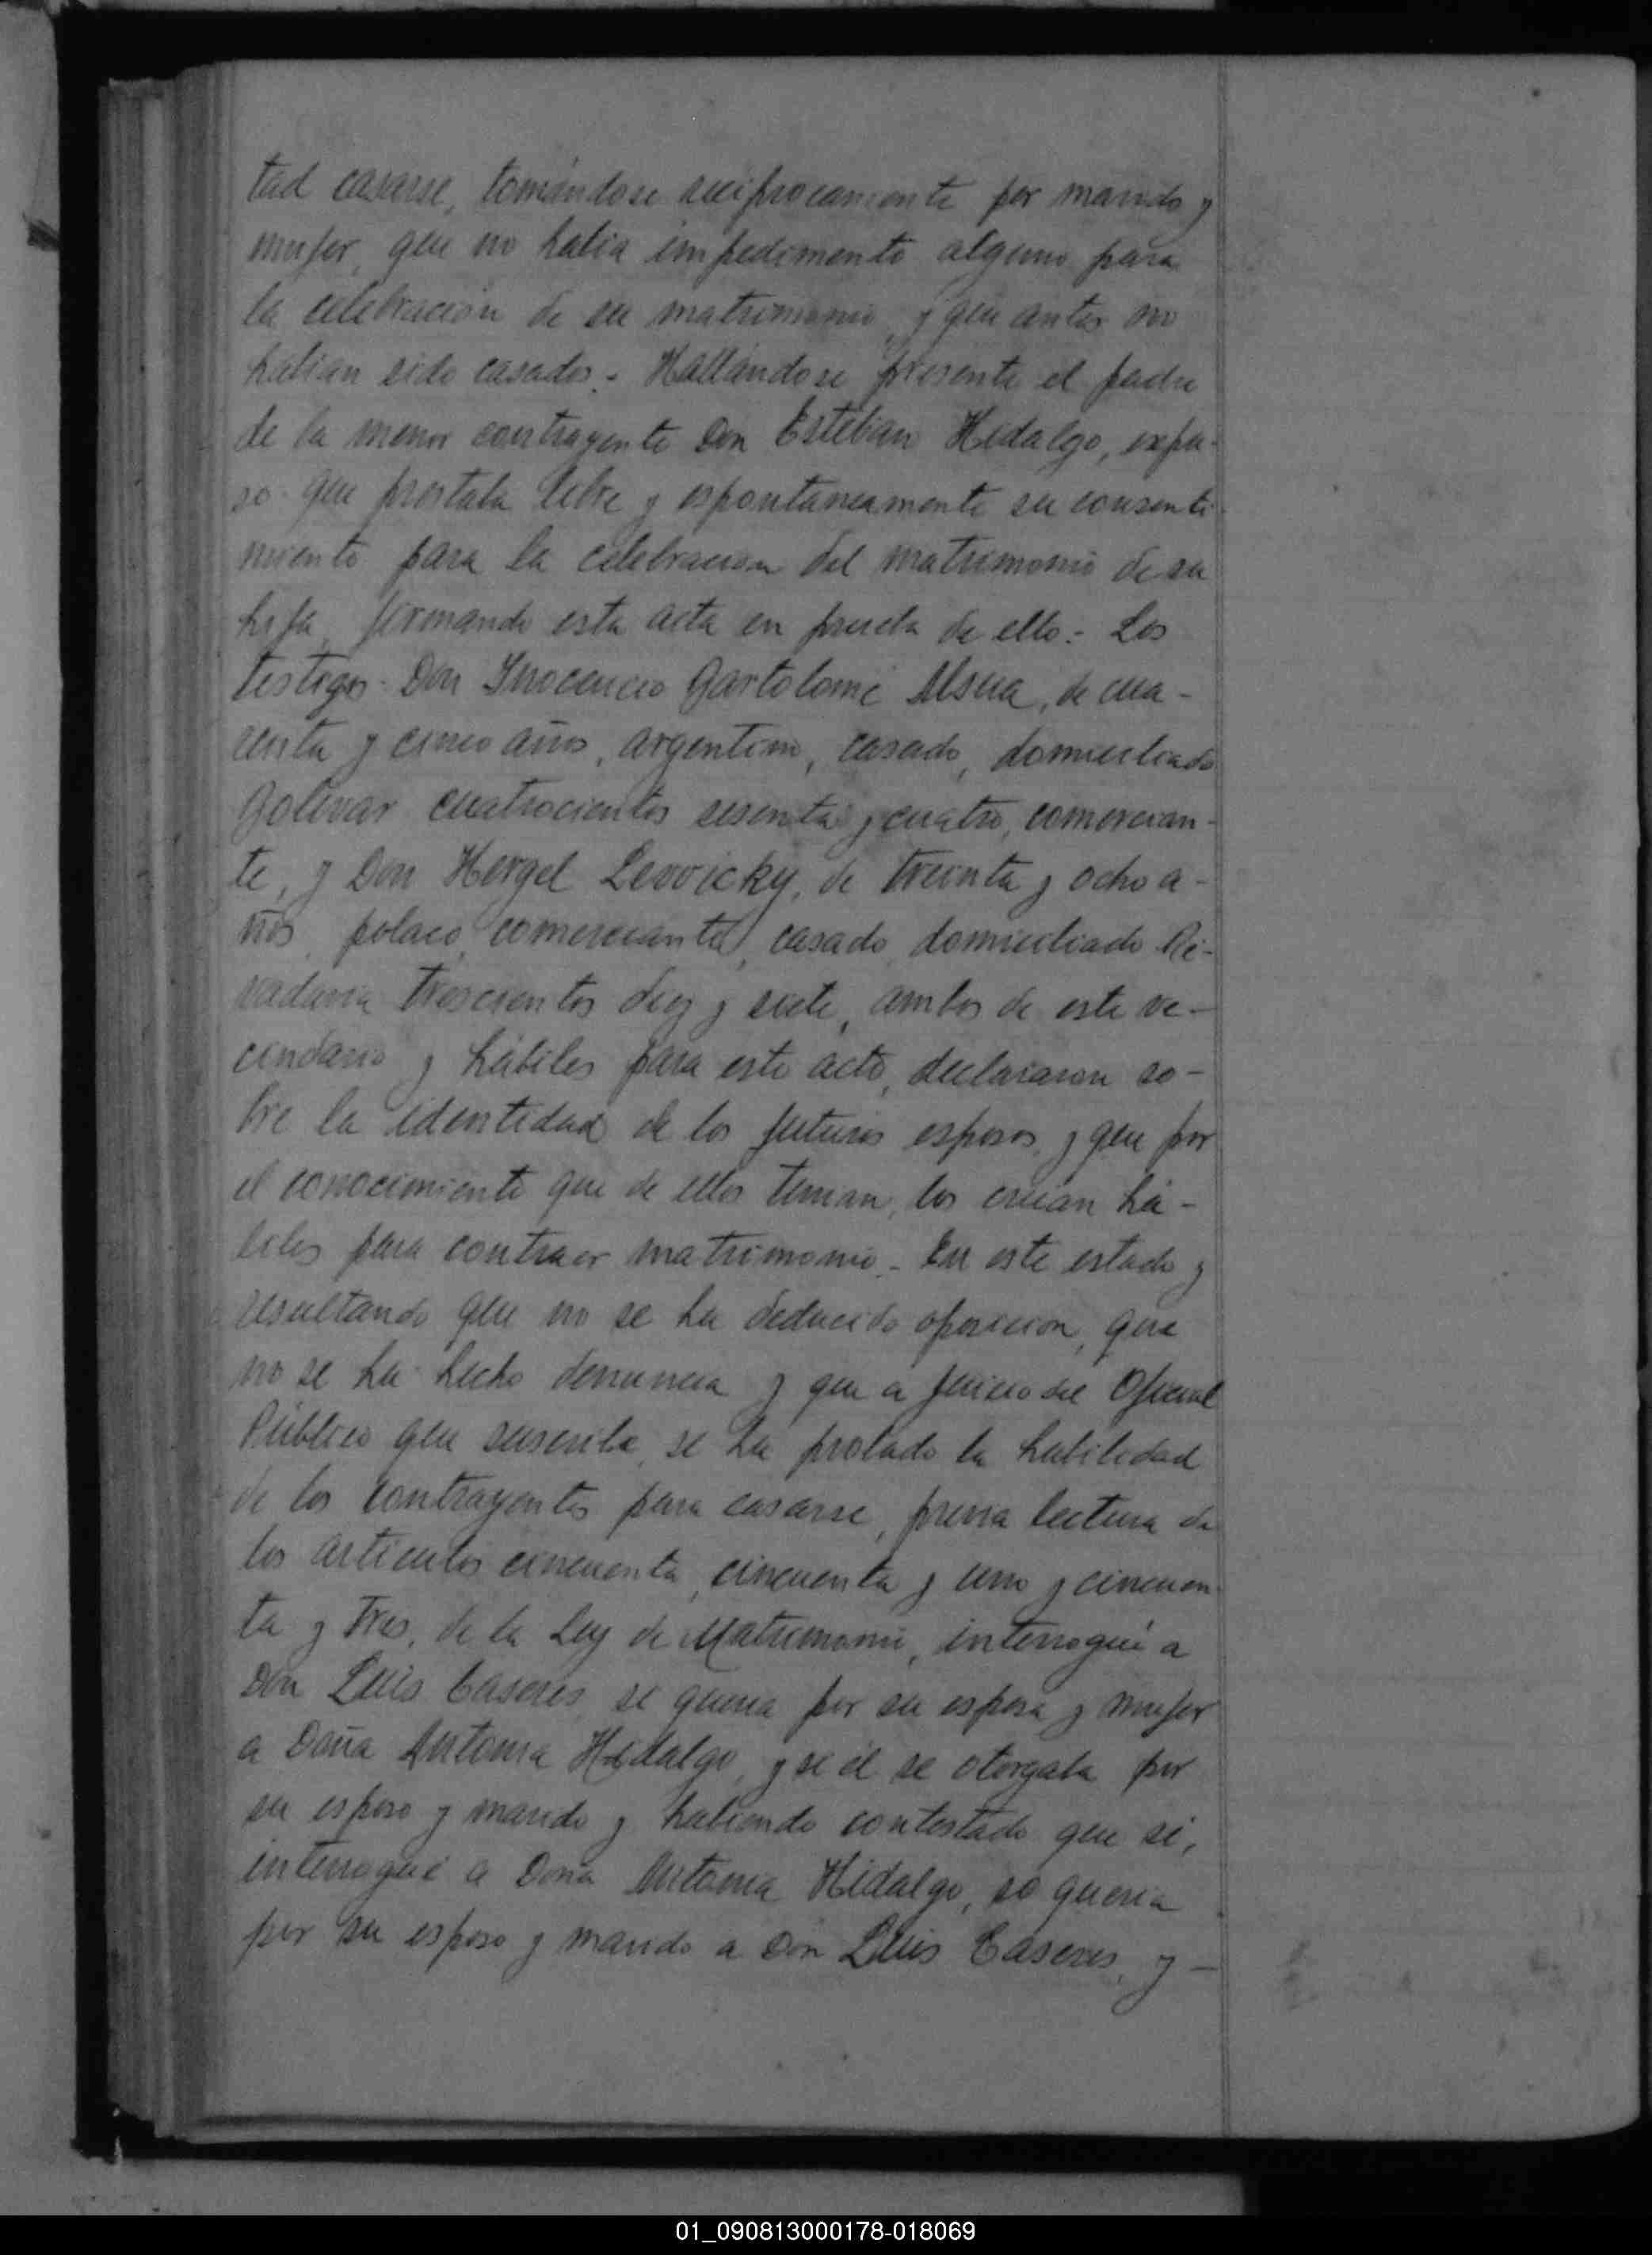 tad casarse, tomándose reciprocamente por marido y
mujer, que no habia impedimento alguno para
la celebración de su matrimonio y que antes no
habian sido casados.- Hallándose presente el padre
de la menor contrayente Don Esteban Hidalgo, expu-
so que prestaba libre y espontaneamente su consenti-
miento para la celebracion del matrimonio de su
hija, firmando esta acta en prueba de ello.- Los
testigos- Don Inocencio Bartolomé Alsua, de cua-
renta y cinco años, argentino, casado, domiciliado
Bolivar cuatrocientos sesenta y cuatro, comercian-
te, y Don Hergel Levvicky, de treinta y ocho a-
ños, polaco, comerciante, casado, domiciliado Ri-
vadavia trescientos diez y siete, ambos de este ve-
cindario y hábiles para este acto, declararon so-
bre la identidad de los futuros esposos, y que por
el conocimiento que de ellos tenian, los creian há-
biles para contraer matrimonio.- En este estado y
resultando que no se ha deducido oposicion, que
no se ha hecho denuncia y que a juicio del Oficial
Público que suscribe, se ha probado la habilidad
de los contrayentes para casarse, previa lectura de
los articulos cincuenta, cincuenta y uno y cincuen-
ta y tres, de la Ley de Matrimonio, interrogué a
Don Luis Caseres, si queria por su esposa y mujer
a Doña Antonia Hidalgo, y si él se otorgaba por
su esposo y marido y habiendo contestado que sí,
interrogué a Doña Antonia Hidalgo, si queria
por su esposo y marido a Don Luis Caseres, y -
01_090813000178-018069